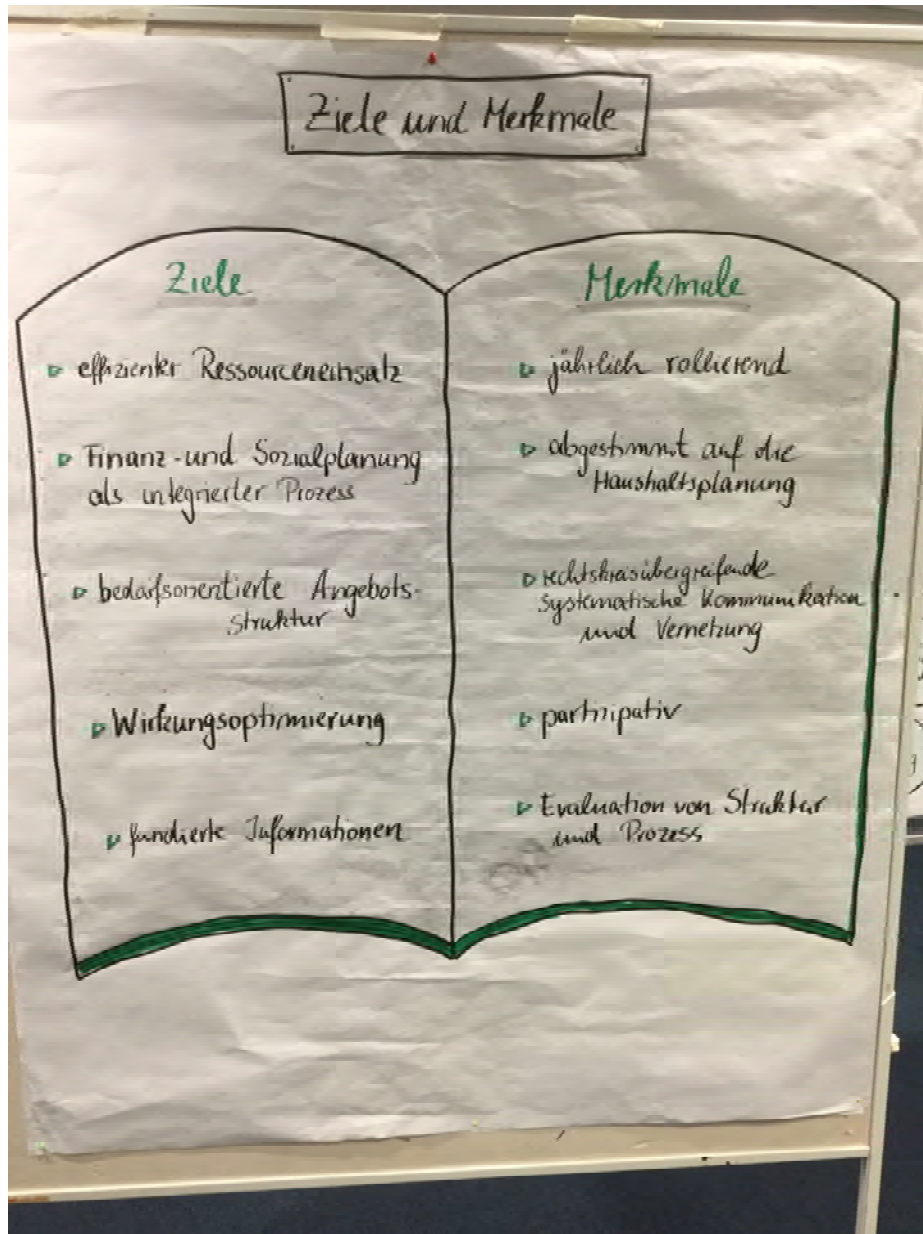 Ziele und Merkmale
Ziele
effizienter Ressourceneinsatz
Finanz- und Sozialplanung
als integrierter Prozess
bedarfsorientierte Angebots-
struktur
Wirkungsoptimierung
fundierte Informationen
Merkmale
jährlich rollierend
abgestimmt auf die
Haushaltsplanung
rechtskreisübergreifende
systematische Kommunikation
und Vernetzung
partizipativ
Evaluation von Struktur
und Prozess